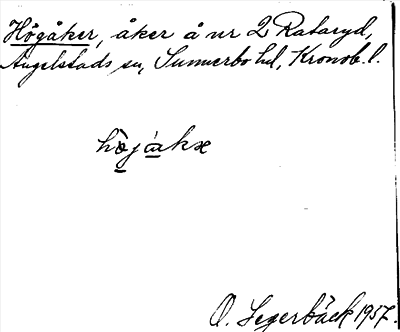 Högåker, åker å nr 2 Rataryd,
Angelstads sn, Sunnerbo hd, Kronob. l.
O. Segerbäck 1957.